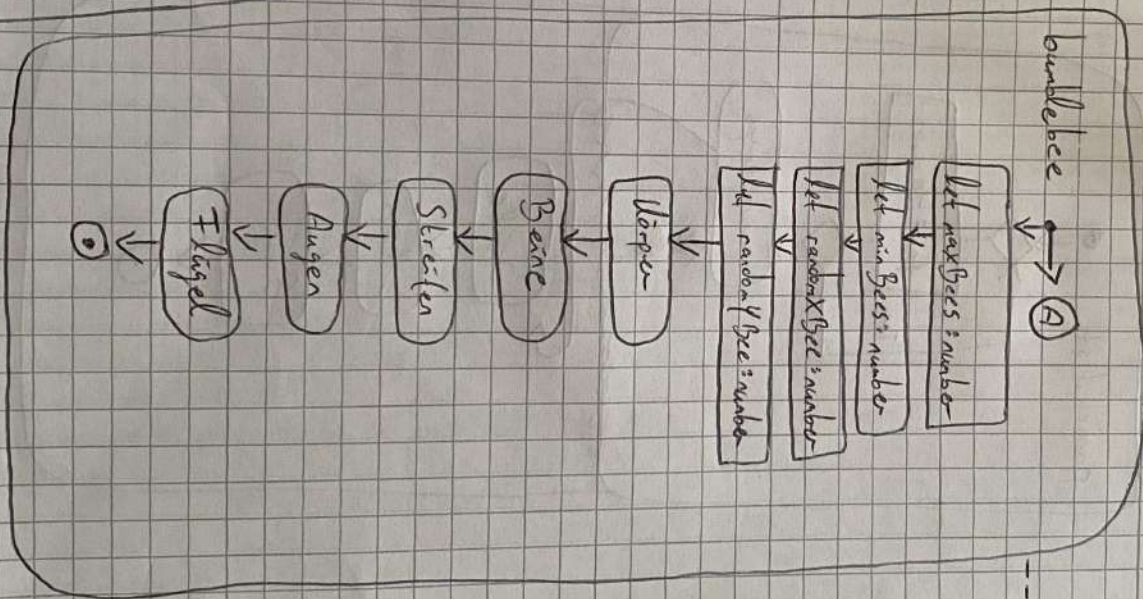 bumblebee
A
let maxBees: number
let minBees: number
let randomXBee: number
let randomYBee: number
Körper
Beine
Streifen
Augen
Flügel